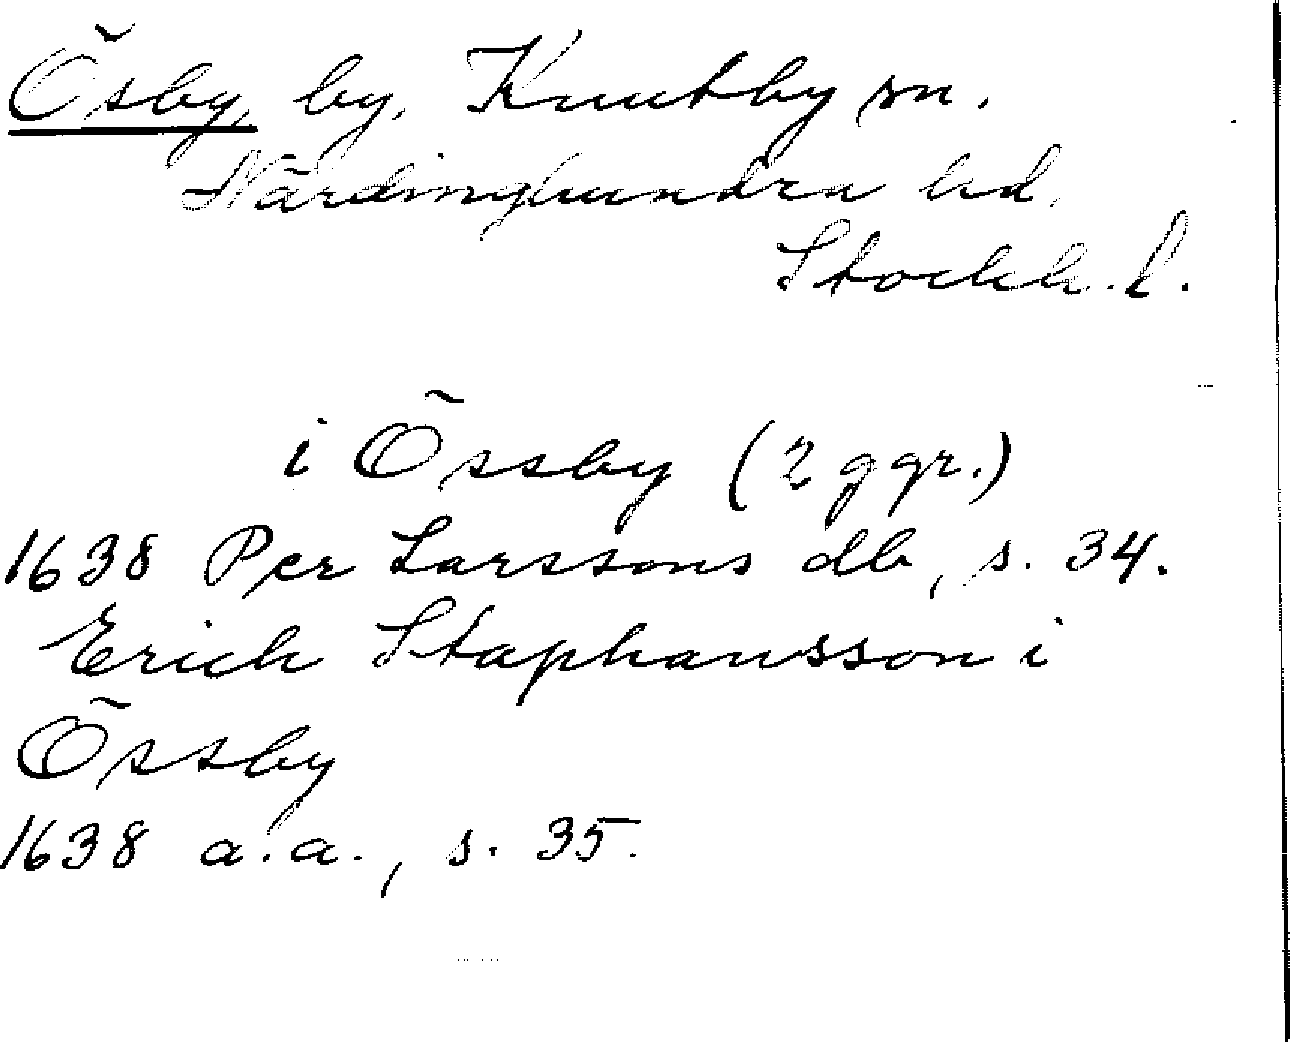 Ösby, by, Knutby sn.
Närdinghundra hd.
Stockh. l.
i Össby (2 ggr.)
1638 Per Larssons db, s. 34.
Erich Staphansson i
Össby
1638 a.a., s. 35.